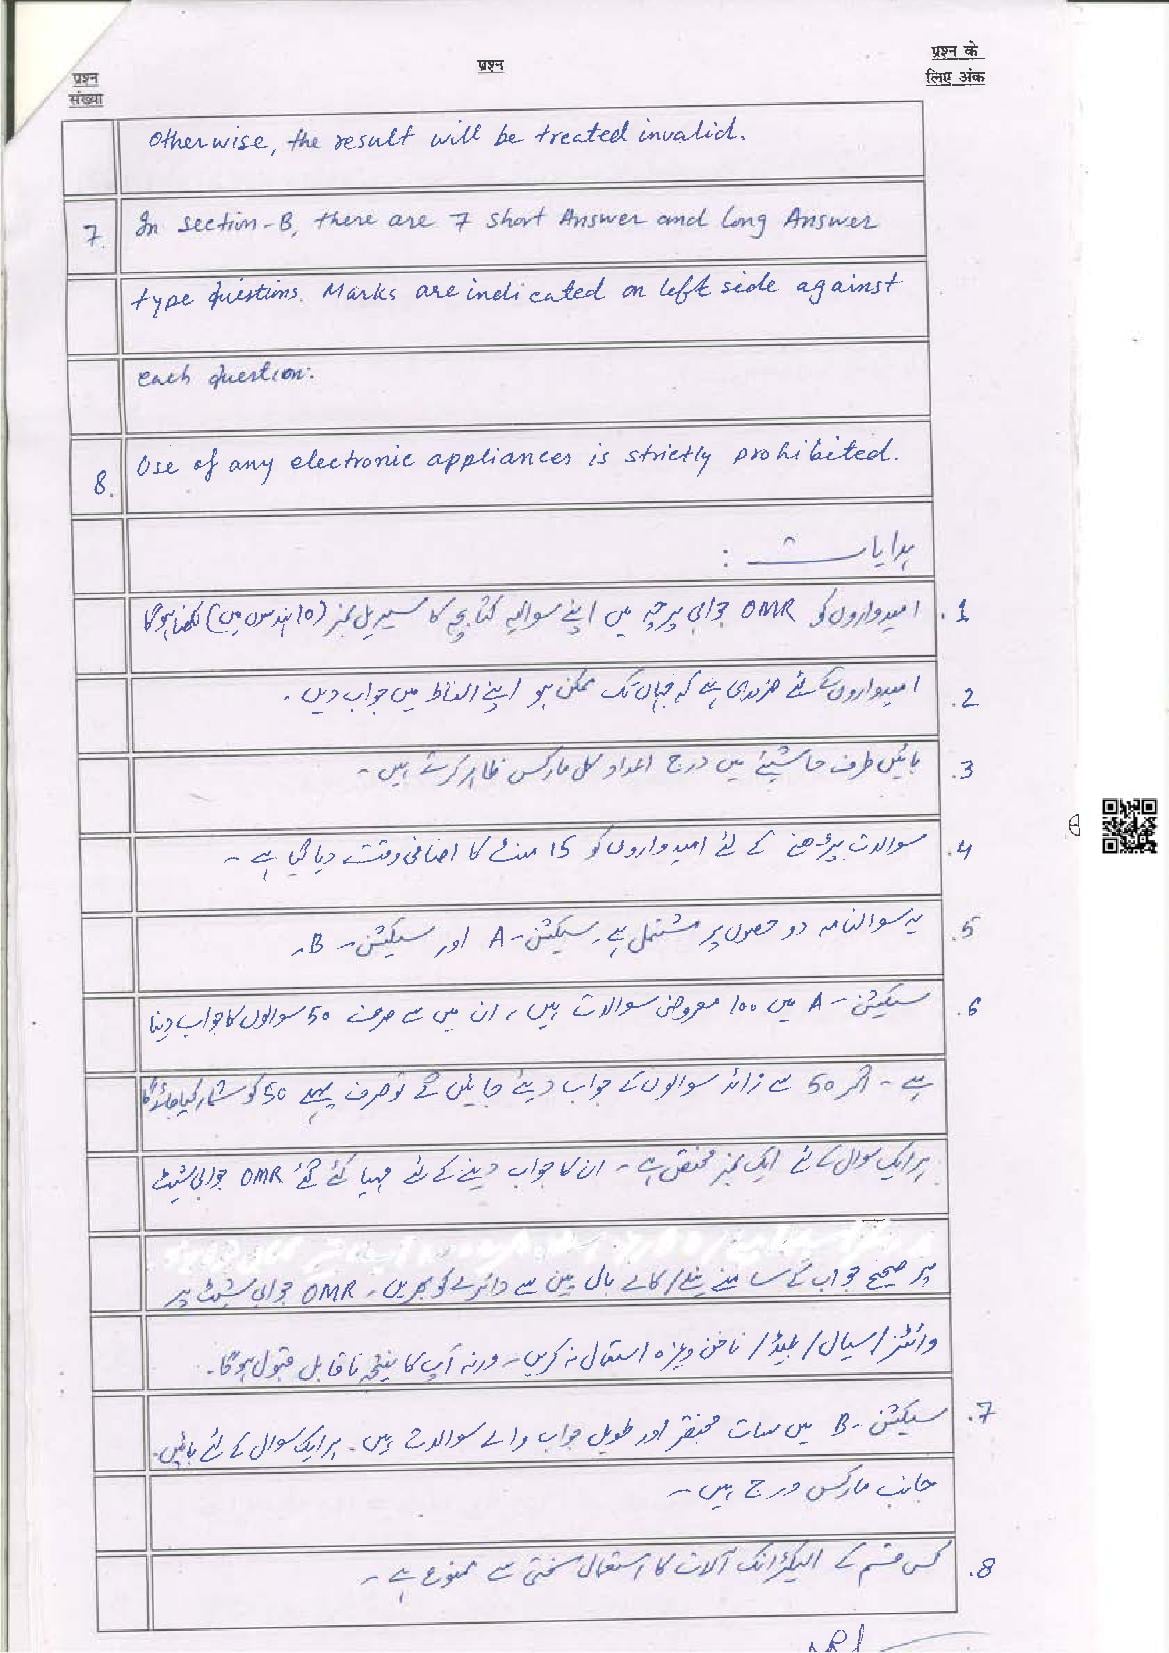 प्रश्न संख्या
प्रश्न
प्रश्न के लिए अंक
otherwise, the result will be treated invalid.
7. In section-B, there are 7 short Answer and long Answer
type questions. Marks are indicated on left side against
each question.
8. Use of any electronic appliances is strictly prohibited.
ہدایات :
1. امیدواروں کو OMR جوابی پرچہ میں اپنے سوالیہ کتابچہ کا سیریل نمبر (10 ہندسوں میں) لکھنا ہوگا
2. امیدواروں کے لئے ضروری ہے کہ جہاں تک ممکن ہو اپنے الفاظ میں جواب دیں۔
3. بائیں طرف حاشیئے میں درج اعداد کل مارکس ظاہر کرتے ہیں۔
4. سوالات پڑھنے کے لئے امیدواروں کو 15 منٹ کا اضافی وقت دیا گیا ہے۔
5. یہ سوالنامہ دو حصوں پر مشتمل ہے۔ سیکشن-A اور سیکشن-B۔
6. سیکشن-A میں 100 معروضی سوالات ہیں، ان میں سے صرف 50 سوالوں کا جواب دینا
ہے۔ اگر 50 سے زائد سوالوں کے جواب دیئے جائیں گے تو صرف پہلے 50 کو شمار کیا جائے گا
ہر ایک سوال کے لئے ایک نمبر مختص ہے۔ ان کا جواب دینے کے لئے مہیا کئے گئے OMR جوابی شیٹ
پر صحیح جواب کے سامنے نیلے/کالے بال پین سے دائرے کو بھریں۔ OMR جوابی شیٹ پر
وائٹنر/سیال/بلیڈ/ناخن وغیرہ استعمال نہ کریں۔ ورنہ آپ کا نتیجہ ناقابل قبول ہوگا۔
7. سیکشن-B میں سات مختصر اور طویل جواب والے سوالات ہیں۔ ہر ایک سوال کے لئے بائیں
جانب مارکس درج ہیں۔
8. کسی قسم کے الیکٹرانک آلات کا استعمال سختی سے ممنوع ہے۔